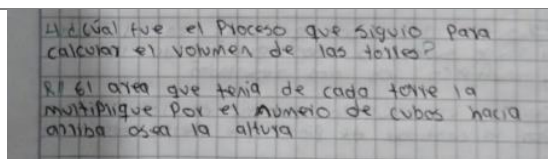 4 ¿cúal fue el Proceso que siguio para
calcular el volumen de las torres?
R// El area que tenia de cada torre la
multiplique por el numero de cubos hacia
arriba osea la altura